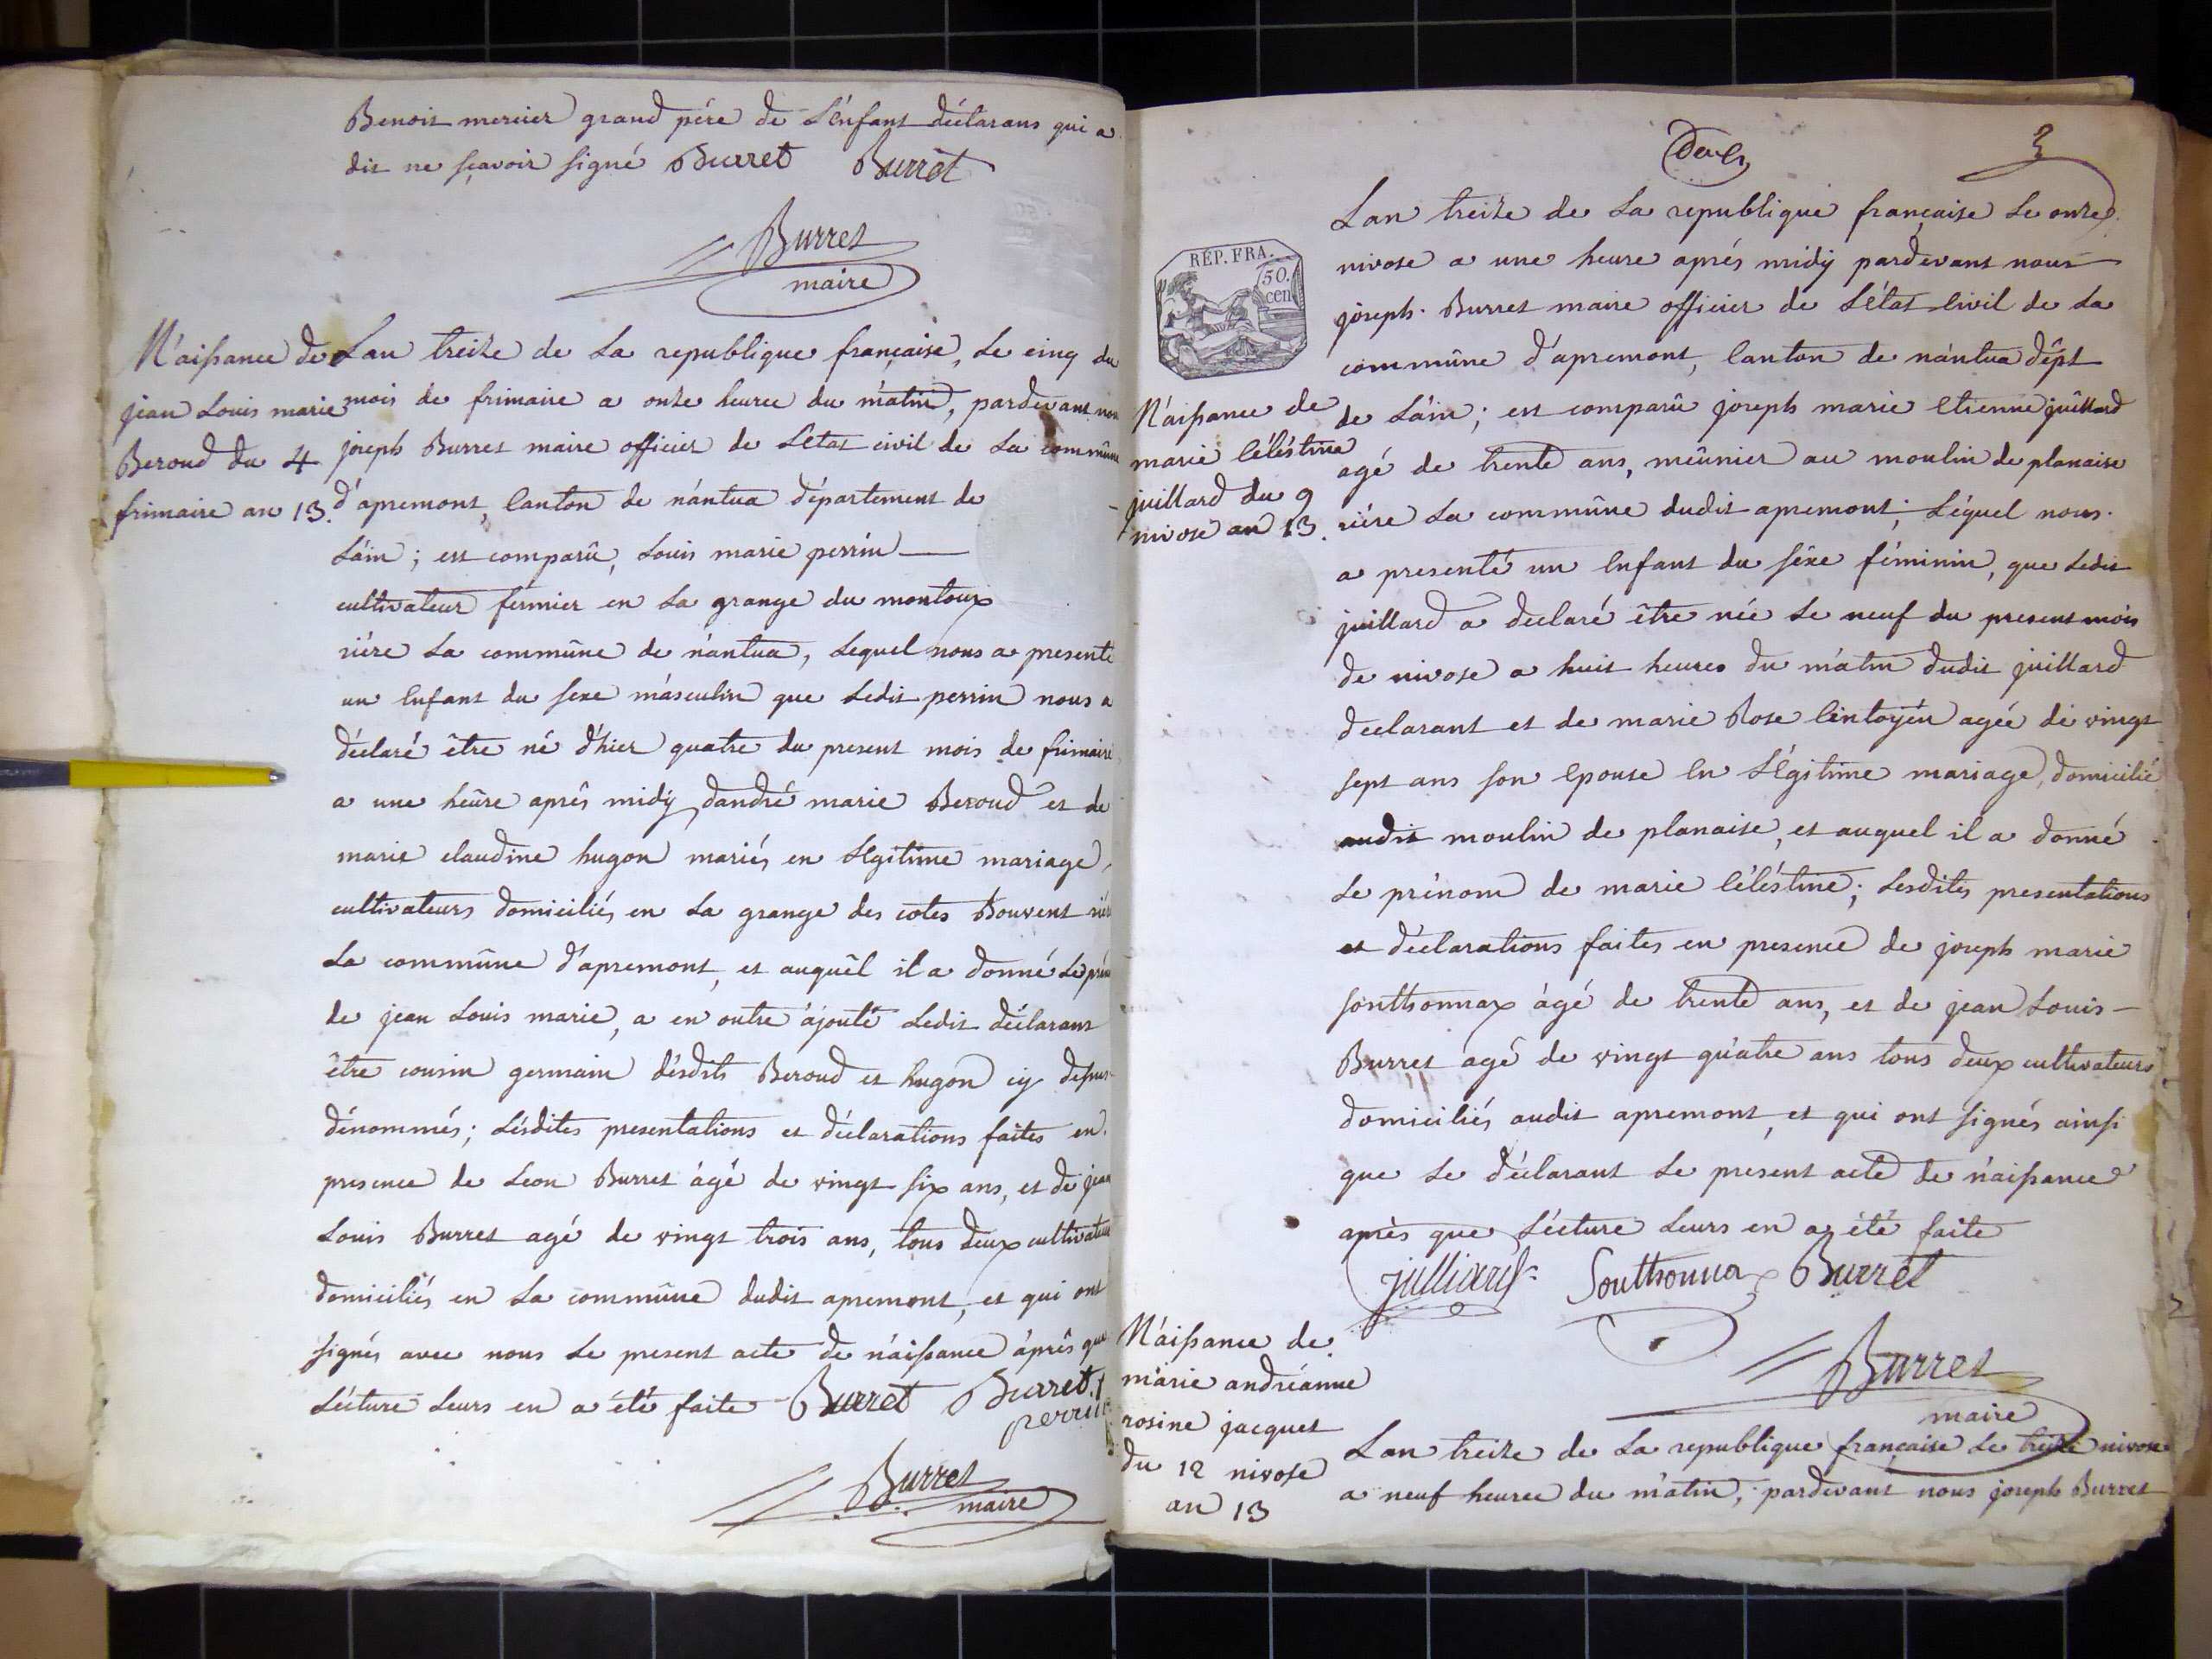 Benoit mercier grand pére de L'énfant déclarans qui a
dit ne sçavoir signé Burret Burret
Burret
maire
N'aissance de
jean Louis marie
Beroud du 4
frimaire an 13.
Lan treize de La republique française, Le cinq du
mois de frimaire a onze heures du mátin, pardevant nous
joseph Burret maire officier de L'état civil de La commûne
d'apremont, Canton de nántua département de
L'áin ; est comparû, Louis marie perrin
cultivateur fermier en La grange du montoux
riére La commûne de nántua, Lequel nous a presenté
un Enfant du sexe másculin que Ledit perrin nous a
déclaré être né d'hier quatre du present mois de frimaire
a une heûre aprês midÿ dandré marie Beroud et de
marie claudine hugon mariés en Légitime mariage,
cultivateurs domiciliés en La grange des cotes Bouvent riére
La commûne d'apremont, et auquêl il a donné Le
de jean Louis marie, a en outre ájouté Ledit déclarant
être cousin germain désdits Beroud et hugon cy
dénommés ; Lésdites presentations et déclarations faites en
presence de Leon Burret ágé de vingt six ans, et de jean
Louis Burret agé de vingt trois ans, tous deux cultivateurs
domiciliés en La commûne dudit apremont, et qui ont
signés avec nous Le present acte de náissance áprês que
Lécture Leurs en a été faite Burret Burret
perrin
Burret
maire
3
RÉP. FRA.
50.
cen
Lan treize de La republique française Le onze
nivose a une heure aprés midÿ pardevant nous
joseph Burret maire officier de L'état Civil de La
commûne d'apremont, Canton de nántua dépt
N'aissance de
marie Céléstine
juillard du 9
nivose an 13.
de L'áin ; est comparû joseph marie Etienne juillard
agé de trente ans, meûnier au moulin de planaise
riére La commûne dudit apremont, Léquel nous
a presenté un Enfant du séxe féminin, que Ledit
juillard a declaré être née Le neuf du present mois
de nivose a huit heures du mátin dudit juillard
declarant et de marie Rose Cintoÿén agée de vingt
sept ans son Epouse En Légitime mariage, domicilié
audit moulin de planaise, et auquel il a donné
Le prénom de marie Céléstine ; Lesdites presentations
et déclarations faites en presence de joseph marie
sontthonnax ágé de trente ans, et de jean Louis
Burret agé de vingt quátre ans tous deux cultivateurs
domiciliés audit apremont, et qui ont signés ainsi
que Le déclarant Le present acte de náissance
aprés que Lécture Leurs en a été faite
Julliard Sontthonnax Burret
Burret
maire
N'áissance de
márie andréanne
rosine jacquet
du 12 nivose
an 13
Lan treize de La republique française Le treize nivose
a neuf heures du mátin, pardevant nous joseph Burret